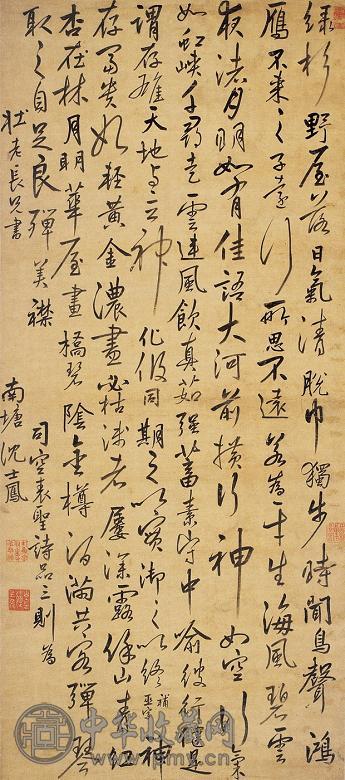 綠杉野屋落日氣清脫巾獨步時聞鳥聲鴻
雁不来之子遠行所思不遠若為平生海風碧雲
夜渚月明如有佳語大河前横行神如空行氣
如虹峡千尋走雲連風飲真茹强蓄素守中喻彼行健是
謂存雄天地与立神化攸同期之以實御之以終補巫字神
存富貴始輕黄金濃盡必枯淺者屢深露餘山青紅
杏在林月明華屋畫橋碧陰金樽酒滿共客彈琴
取之自足良殫美襟
司空表聖詩品三則為
壯老長兄書
南塘沈士鳳
中华收藏网